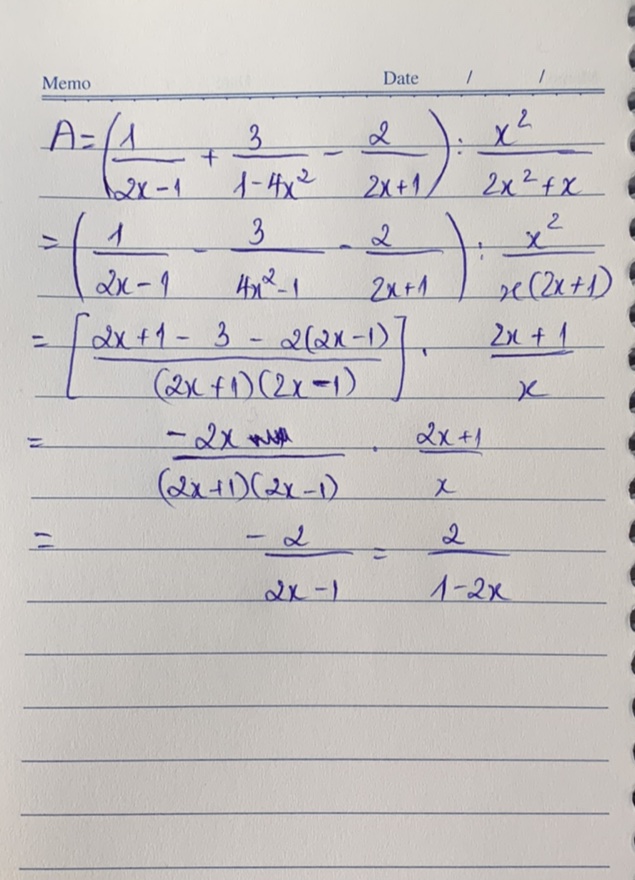 Memo Date / /
A = (1/(2x-1) + 3/(1-4x²) - 2/(2x+1)) : x²/(2x²+x)
= (1/(2x-1) - 3/(4x²-1) - 2/(2x+1)) : x²/(x(2x+1))
= [(2x+1-3-2(2x-1))/((2x+1)(2x-1))] . (2x+1)/x
= -2x/((2x+1)(2x-1)) . (2x+1)/x
= -2/(2x-1) = 2/(1-2x)